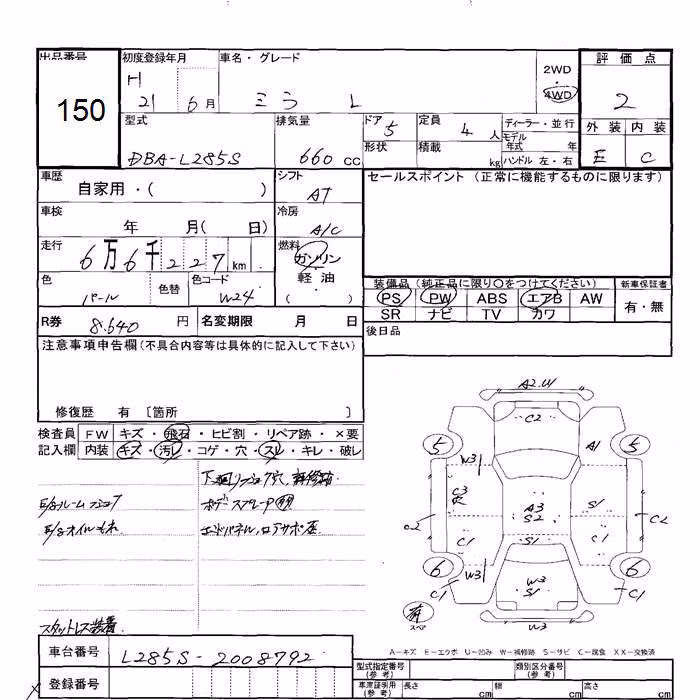 出品番号
150
初度登録年月
H
21 6月
車名・グレード
ミラ L
2WD
4WD
評価点
2
外装 内装
E C
型式
DBA-L285S
排気量
660 cc
ドア 5
形状
定員 4 人
積載 kg
ディーラー・並行
モデル年式 年
ハンドル 左・右
車歴
自家用・( )
シフト
AT
車検
年 月( 日)
冷房
A/C
走行
6万6千227km
燃料
ガソリン
・
軽油
( )
色
パール
色替
色コード
W24
R券 8.640 円
名変期限 月 日
セールスポイント (正常に機能するものに限ります)
装備品 (純正品に限り○をつけてください)
PS PW ABS エアB AW
SR ナビ TV カワ
新車保証書
有・無
後日品
注意事項申告欄(不具合内容等は具体的に記入して下さい)
修復歴 有 〔箇所
検査員 FW キズ・飛石・ヒビ割・リペア跡・×要
記入欄 内装 キズ・汚レ・コゲ・穴・スレ・キレ・破レ
E/gルーム
E/gオイルもれ
スタットレス装着
A2.U1
C2
5
5
A1
W3
C3
A3
S2
S1
C2
C2
C1
S1
C1
6
6
W3
W3
S1
C1
C1
有
スペア
W3
A-キズ E-エクボ U-凹み W-補修跡 S-サビ C-腐食 XX-交換済
車台番号 L285S-2008792
登録番号
型式指定番号
(参考)
類別区分番号
(参考)
車庫証明用
(参考)
長さ cm
幅 cm
高さ cm